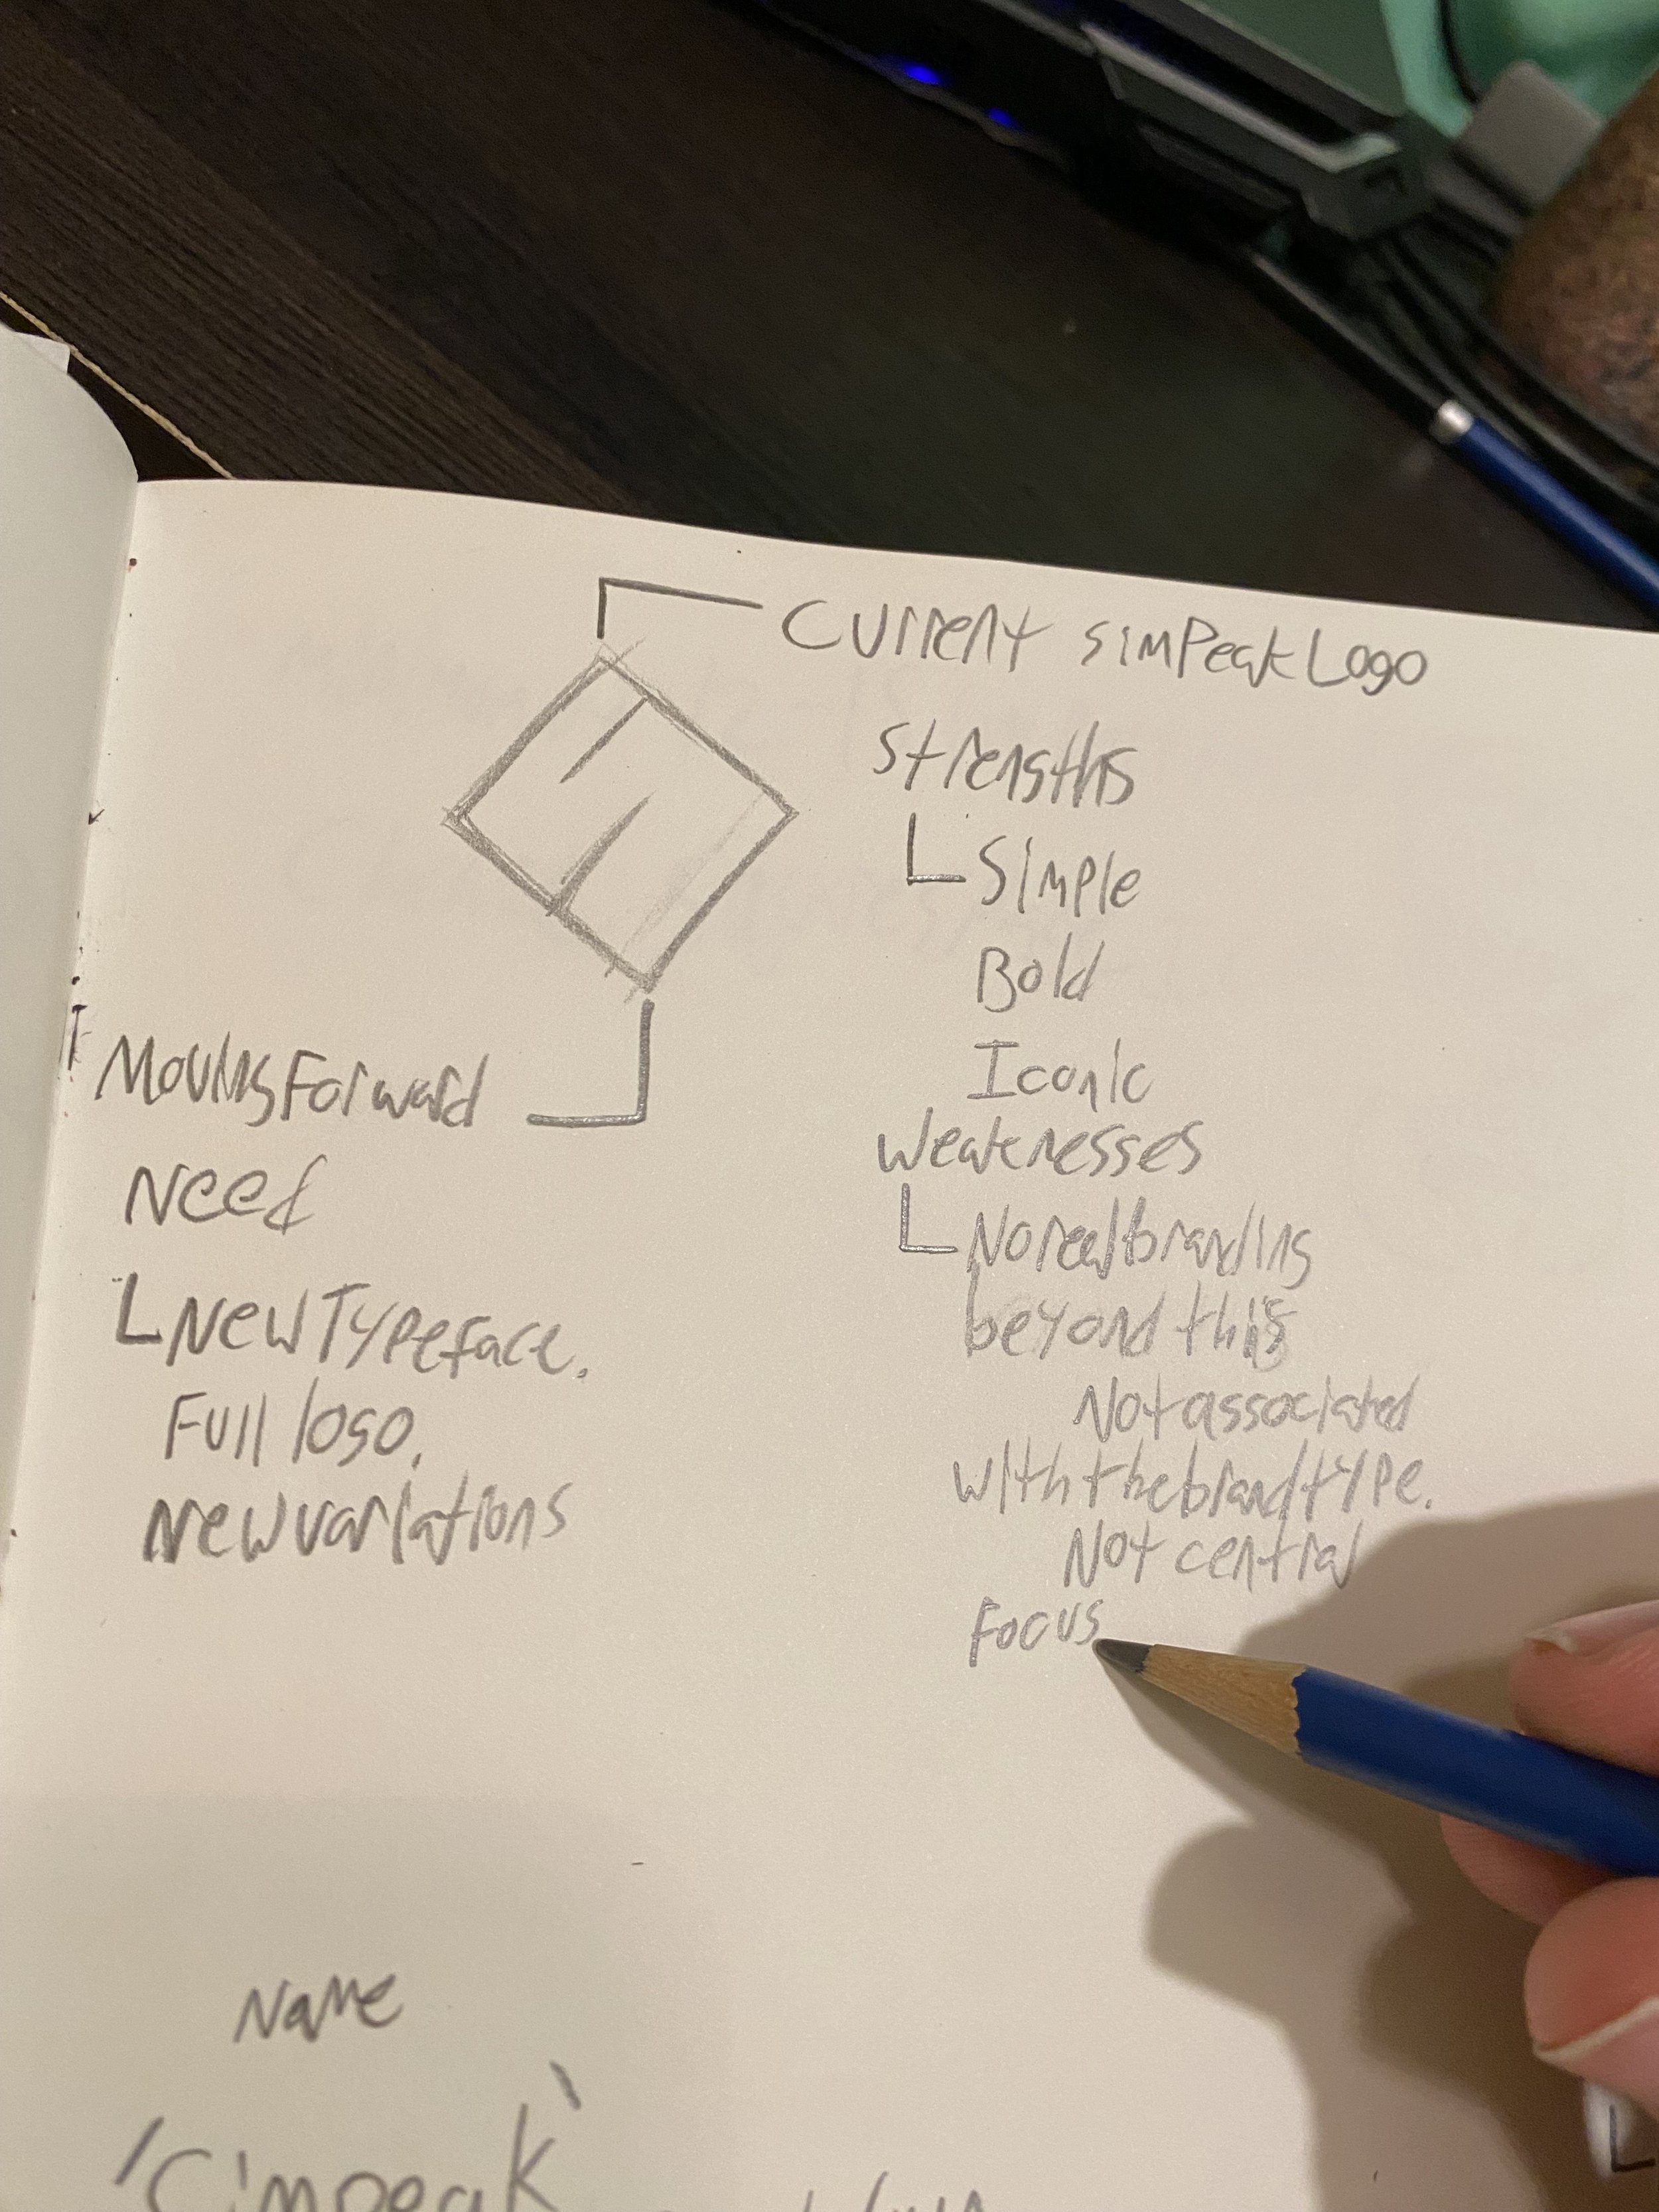 Current simPeak Logo
Strengths
Simple
Bold
Iconic
Weaknesses
No real branding
beyond this
Not associated
with the brand type.
Not central
Focus
Moving Forward
Need
New Typeface.
Full logo.
New variations
Name
'Simpeak'